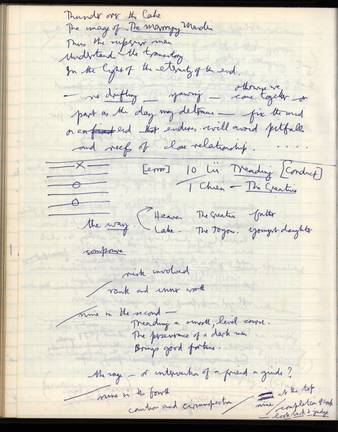 Thunder over the Lake
The image of The Marrying Maiden
Thus the superior man
Understands the transitory
In the light of the eternity of the end.
— no drifting —
otherwise we
come together
part as the day may determine — fix
on an end that endures will avoid pitfalls
and reefs of close relationship. . . . .
[error] 10 Lü Treading [Conduct]
1 Chien — The Creative
Heaven The Creative father
the way
Lake. The Joyous. youngest daughter
composure
risk involved
rank and inner worth
nine in the second —
Treading a smooth, level course.
The perseverance of a dark man
Brings good fortune.
the sage — or intervention of a friend a guide?
nine in the fourth
caution and circumspection
at the top
nine
completion of work
look back & judge